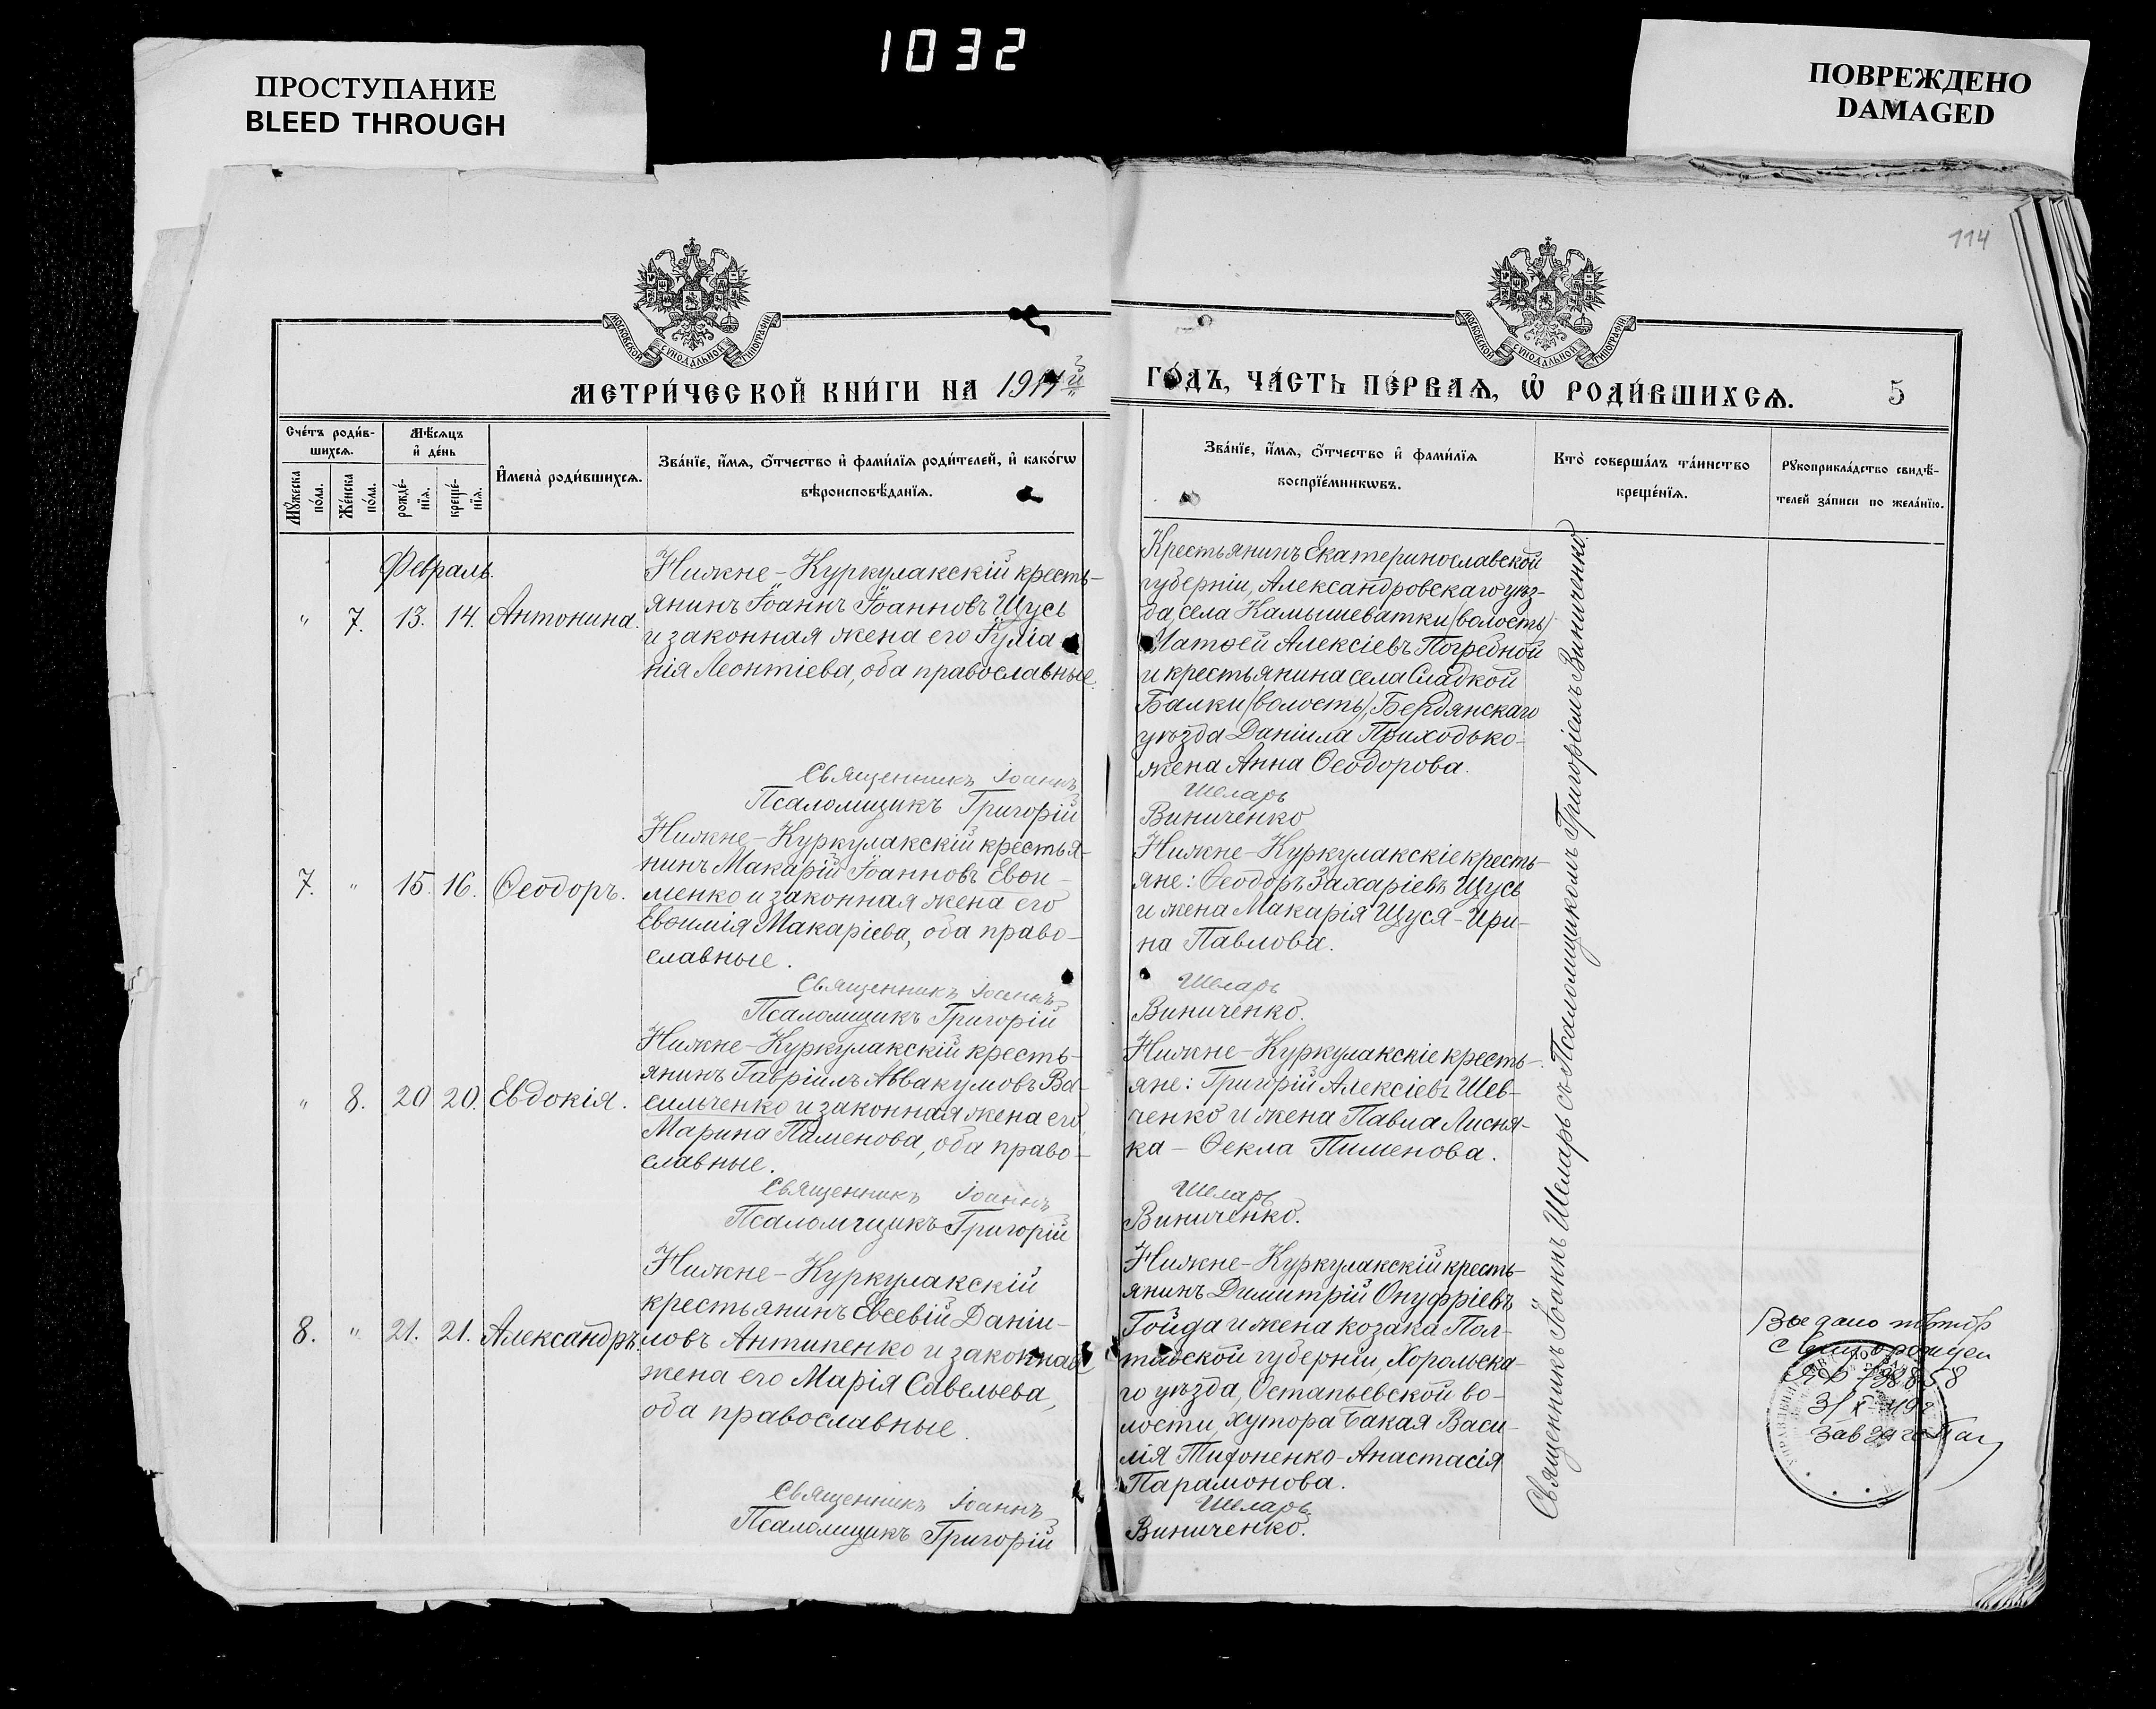 1032
ПРОСТУПАНИЕ
BLEED THROUGH
ПОВРЕЖДЕНО
DAMAGED
114
МОСКОВСКОЙ СѴНОДАЛЬНОЙ ТИПОГРАФІИ
МОСКОВСКОЙ СѴНОДАЛЬНОЙ ТИПОГРАФІИ
МЕТРИ́ЧЕСКОЙ КНИ́ГИ НА
ГО́ДЪ, ЧА́СТЬ ПЕ́РВАѦ, Ѡ҆ РОДИ́ВШИХСѦ.
5
Сче́тъ роди́в-
шихсѧ.
Мꙋ́жеска
по́ла.
Же́нска
по́ла.
Мѣ́сѧцъ
и҆ де́нь
рожде́-
нїѧ.
креще́-
нїѧ.
И҆мена̀ роди́вшихсѧ.
Зва́нїе, и҆́мѧ, ѻ҆́тчество и҆ фами́лїѧ роди́телей, и҆ како́гѡ
вѣроисповѣ́данїѧ.
Зва́нїе, и҆́мѧ, ѻ҆́тчество и҆ фами́лїѧ
воспрїе́мникѡвъ.
Кто̀ соверша́лъ та́инство
креще́нїѧ.
Рꙋкоприкла́дство свидѣ́-
телей за́писи по жела́нїю.
Февраль.
" 7. 13. 14. Антонина.
Нижне-Куркулакскій кресть-
янинъ Іоаннъ Іоанновъ Щусь
и законная жена его Іуліа
нія Леонтіева, оба православные.
Священникъ Іоаннъ
Псаломщикъ Григорій
Крестьянинъ Екатеринославской
губерніи, Александровскаго уѣз-
да, села Камышеватки (волость)
Матѳей Алексіевъ Погребной
и крестьянина села Сладкой
Балки (волость), Бердянскаго
уѣзда Даніила Приходько-
жена Анна Ѳеодорова.
Шеларь
Виниченко
7. " 15. 16. Ѳеодоръ.
Нижне-Куркулакскій крестья-
нинъ Макарій Іоанновъ Евфи-
менко и законная жена его
Евфимія Макаріева, оба право-
славные.
Священникъ Іоаннъ
Псаломщикъ Григорій
Нижне-Куркулакскіе кресть-
яне: Ѳеодоръ Захаріевъ Щусь
и жена Макарія Щуся-Ири-
на Павлова.
Шеларь
Виниченко.
" 8. 20 20. Евдокія.
Нижне-Куркулакскій кресть-
янинъ Гавріилъ Аввакумовъ Ва-
сильченко и законная жена его
Марина Пименова, оба право-
славные.
Священникъ Іоаннъ
Псаломщикъ Григорій
Нижне-Куркулакскіе кресть-
яне: Григорій Алексіевъ Шев-
ченко и жена Павла Лисня-
ка - Ѳекла Пименова.
Шеларь
Виниченко.
8. " 21. 21. Александръ.
Нижне-Куркулакскій
крестьянинъ Евсевій Даніи-
ловъ Антипенко и законная
жена его Марія Савельева,
оба православные.
Священникъ Іоаннъ
Псаломщикъ Григорій
Нижне-Куркулакскій кресть-
янинъ Димитрій Онуфріевъ
Гойда и жена козака Пол-
тавской губерніи, Хорольска-
го уѣзда, Остапьевской во-
лости, хутора Бакая Васи-
лія Тифоненко-Анастасія
Парамонова.
Шеларь
Виниченко.
Священникъ Іоаннъ Шеларь съ Псаломщикомъ Григоріемъ Виниченко.